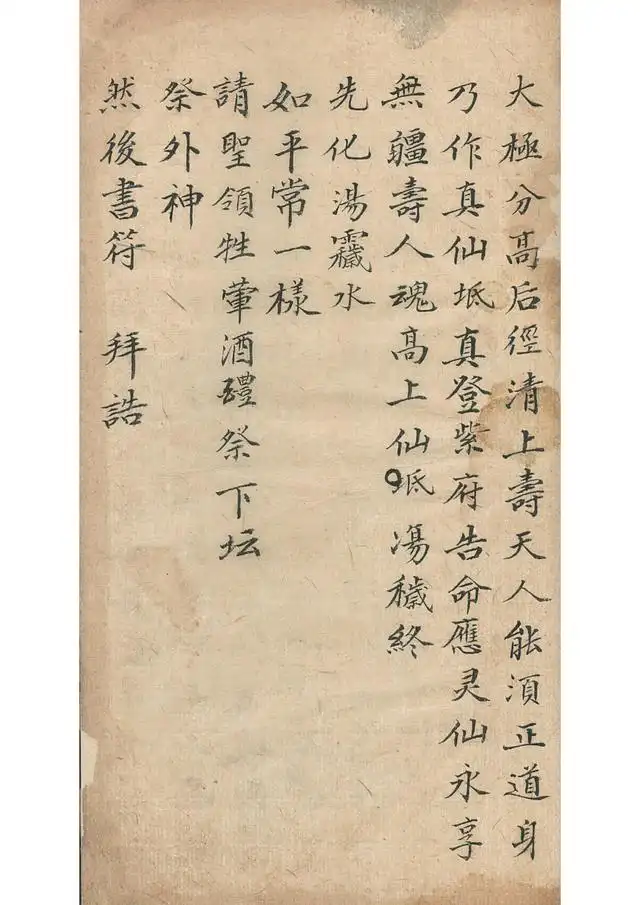 大極分高后徑清上壽天人能湏正道身
乃作真仙坻真登紫府告命應灵仙永享
無疆壽人魂高上仙坻 傷穢終
先化湯穢水
如平常一樣
請聖領牲葷酒醴祭下坛
祭外神
然後書符 拜誥